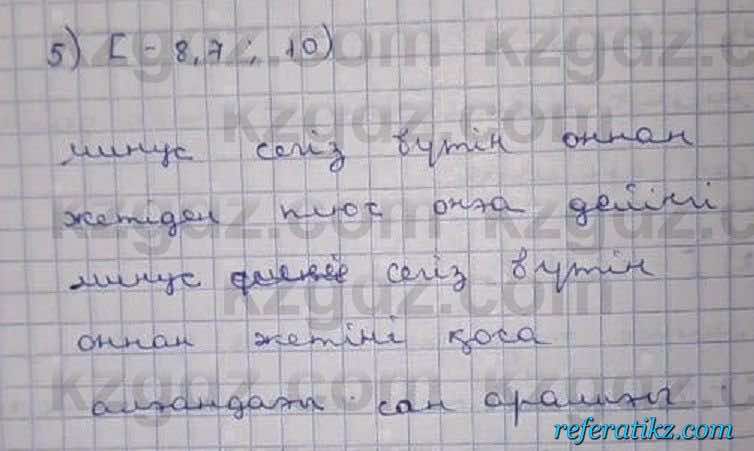 5) [-8,7; 10)
минус сегіз бүтін оннан
жетіден плюс онға дейінгі
минус сегіз бүтін
оннан жетіні қоса
алғандағы сан аралығы.
kzgaz.com
referatikz.com